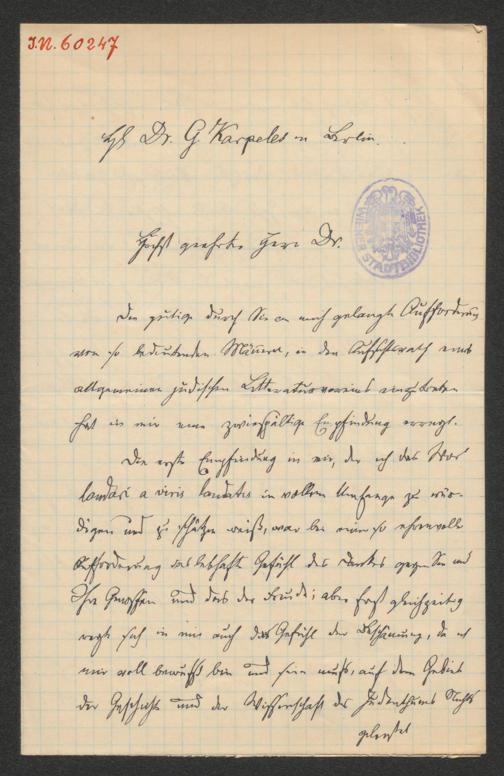 I.N. 60247
Dr. G. Karpeles in Berlin.
WIENER STADTBIBLIOTHEK
Höchst geehrter Herr Dr.
Die gütige durch Sie an mich gelangte Aufforderung
von so bedeutenden Männern, in den Aufsichtsrath eines
allgemeinen jüdischen Litteraturvereins einzutreten
hat in mir eine zwiespältige Empfindung erregt.
Die erste Empfindung in mir, der ich das Wort
laudari a viris laudatis in vollem Umfange zu wür-
digen und zu schätzen weiß, war bei einer so ehrenvollen
Aufforderung das lebhafte Gefühl des Dankes gegen Sie und
Ihre Genossen und das der Freude; aber fast gleichzeitig
regte sich in mir auch das Gefühl der Beschämung, da ich
mir voll bewußt bin und sein muß, auf dem Gebiete
der Geschichte und der Wissenschaft des Judenthums Nichts
geleistet